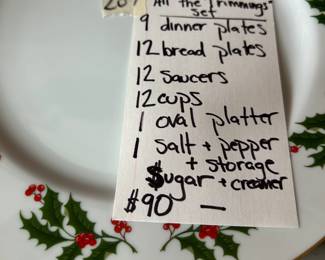 20
"All the Trimmings"
Set
9 dinner plates
12 bread plates
12 saucers
12 cups
1 oval platter
1 salt + pepper
+ storage
Sugar + creamer
$90 —